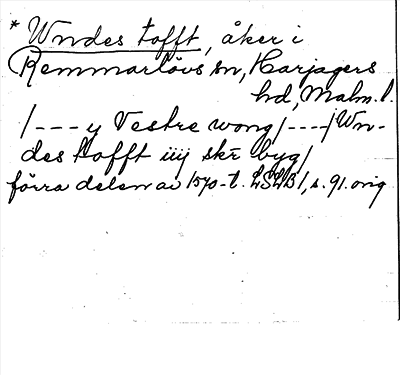 * Wndes tofft, åker i
Remmarlövs sn, Harjagers
hd, Malm. l.
/---y Vestre wong/---/Wn-
des tofft iiij skr byg/
förra delen av 1570-t. LSLB 1, s. 91. orig